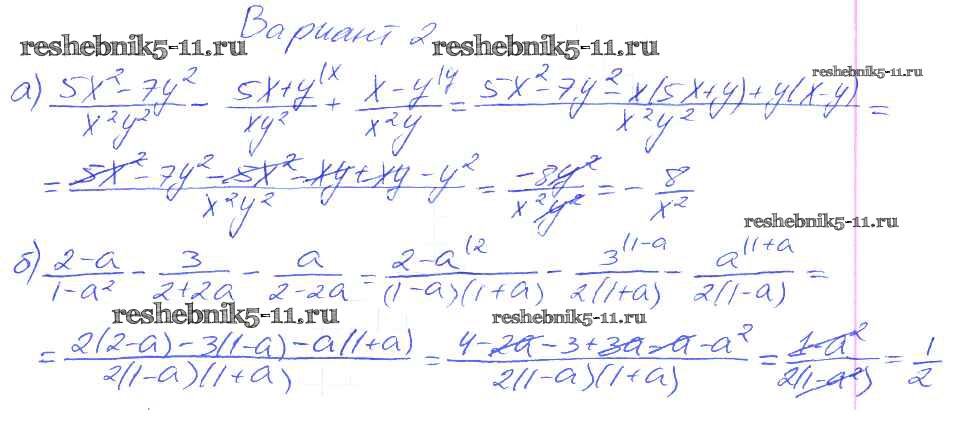 Вариант 2
reshebnik5-11.ru reshebnik5-11.ru
reshebnik5-11.ru
а) (5x² - 7y²)/(x²y²) - (5x+y)/(xy²) (x + (x-y)/(x²y) (y = (5x² - 7y² - x(5x+y) + y(x-y))/(x²y²) =
= (5x² - 7y² - 5x² - xy + xy - y²)/(x²y²) = (-8y²)/(x²y²) = - 8/x²
reshebnik5-11.ru
б) (2-a)/(1-a²) - 3/(2+2a) - a/(2-2a) = (2-a)/((1-a)(1+a)) (2 - 3/(2(1+a)) (1-a - a/(2(1-a)) (1+a =
reshebnik5-11.ru reshebnik5-11.ru
= (2(2-a) - 3(1-a) - a(1+a))/(2(1-a)(1+a)) = (4 - 2a - 3 + 3a - a - a²)/(2(1-a)(1+a)) = (1-a²)/(2(1-a²)) = 1/2